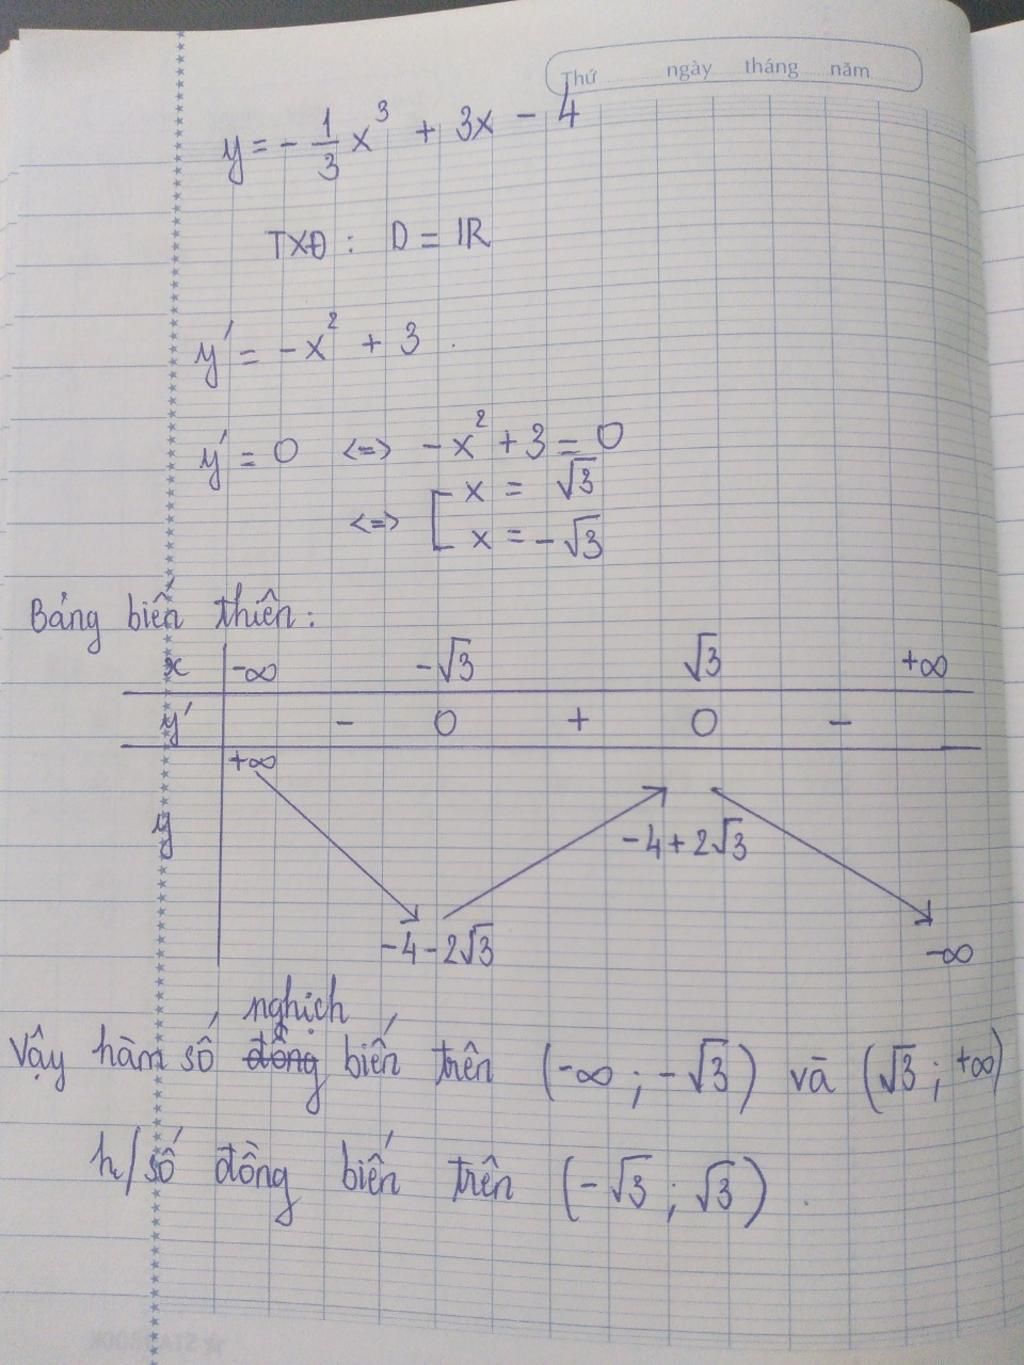 Thứ ngày tháng năm
y = - 1/3 x³ + 3x - 4
TXĐ : D = IR
y' = -x² + 3 .
y' = 0 <=> -x² + 3 = 0
<=> [ x = √3
x = -√3
Bảng biến thiên:
x -∞ -√3 √3 +∞
y' - 0 + 0 -
+∞
y
-4+2√3
-4-2√3 -∞
nghịch
Vậy hàm số đồng biến trên (-∞ ; -√3) và (√3 ; +∞)
h/số đồng biến trên (-√3 ; √3) .